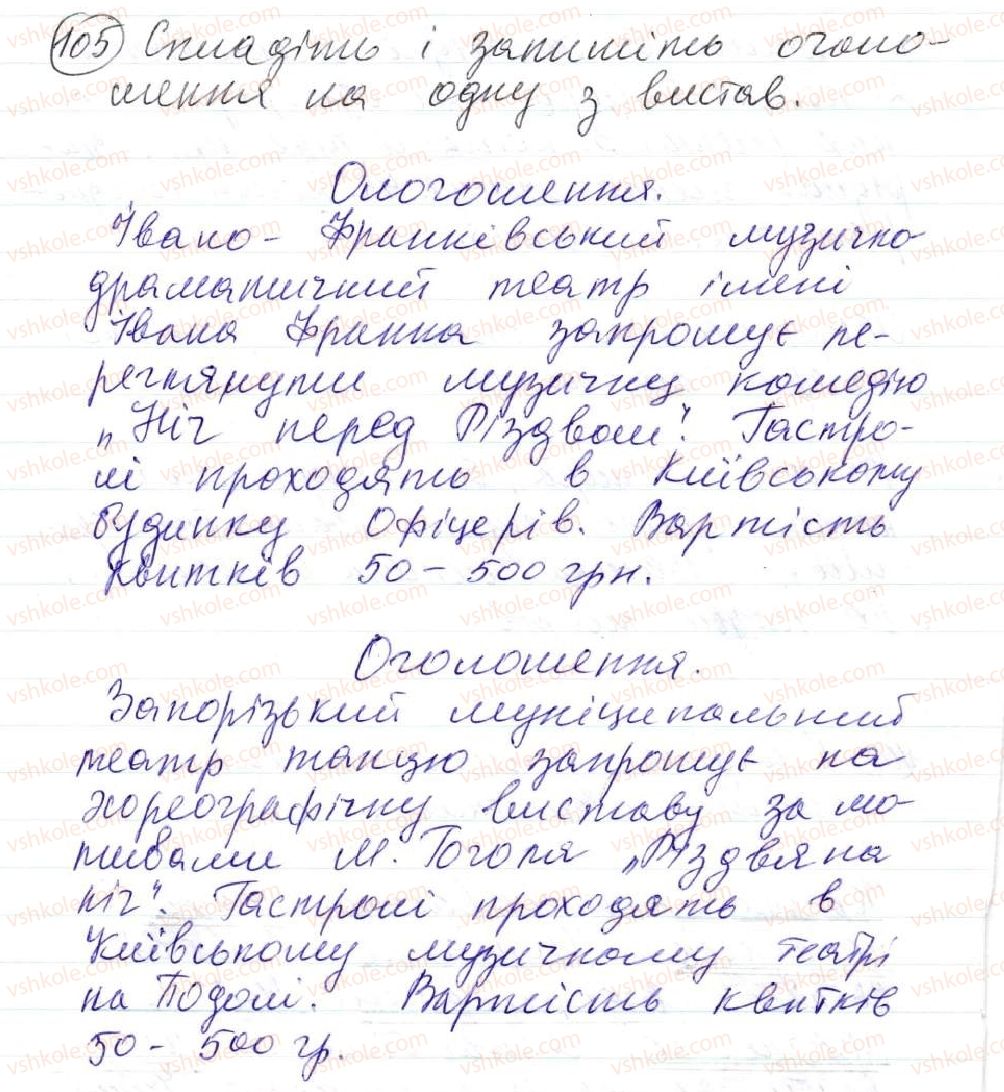 105 Складіть і запишіть оголо-
шення на одну з вистав.
Ологошення.
Івано-Франківський музично
драматичний театр імені
Івана Франка запрошує пе-
реглянути музичну комедію
„Ніч перед Різдвом". Гастро-
лі проходять в Київському
будинку офіцерів. Вартість
квитків 50-500 грн.
Оголошення.
Запорізький муніципальний
театр танцю запрошує на
хореографічну виставу за мо-
тивами М. Гоголя „Різдвяна
ніч". Гастролі проходять в
Київському музичному театрі
на Подолі. Вартість квитків
50-500 гр.